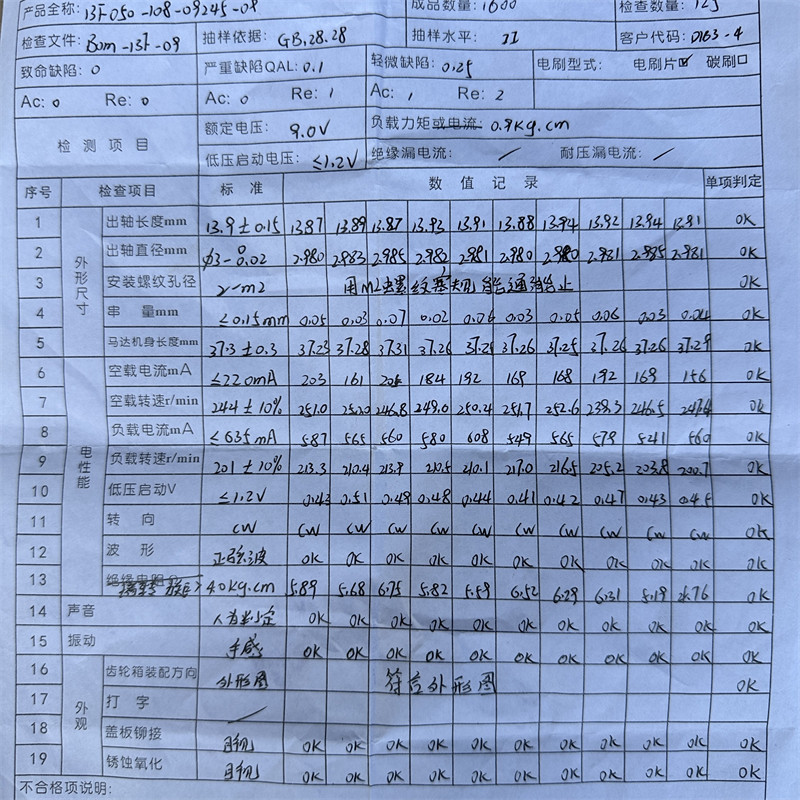 产品全称: 13F-050-108-09245-08 成品数量: 1600 检查数量: 125
检查文件: Bom-13F-09 抽样依据: GB.28.28 抽样水平: II 客户代码: D163-4
致命缺陷: 0 严重缺陷QAL: 0.1 轻微缺陷: 0.25 电刷型式: 电刷片☑ 碳刷□
Ac: 0 Re: 0 Ac: 0 Re: 1 Ac: 1 Re: 2
检测项目 额定电压: 9.0V 负载力矩或电流: 0.9kg.cm
低压启动电压: ≤1.2V 绝缘漏电流: / 耐压漏电流: /
序号 检查项目 标准 数值记录 单项判定
外形尺寸
1 出轴长度mm 13.9±0.15 13.87 13.89 13.87 13.93 13.91 13.88 13.94 13.92 13.94 13.91 OK
2 出轴直径mm φ3-0 0.02 2.980 2.983 2.985 2.982 2.981 2.980 2.980 2.981 2.985 2.981 OK
3 安装螺纹孔径 2-m2 用M2螺纹塞规 通 止 OK
4 串量mm ≤0.15mm 0.05 0.03 0.07 0.02 0.06 0.03 0.05 0.06 0.03 0.04 OK
5 马达机身长度mm 37.3±0.3 37.23 37.28 37.31 37.26 37.26 37.25 37.26 37.26 37.29 OK
电性能
6 空载电流mA ≤220mA 203 161 184 192 169 168 192 169 156 OK
7 空载转速r/min 244±10% 251.0 252.0 246.8 249.0 250.4 251.7 252.6 239.3 246.5 247.4 OK
8 负载电流mA ≤635mA 587 565 560 580 608 549 565 579 541 560 OK
9 负载转速r/min 201±10% 213.3 210.4 213.9 210.5 210.1 217.0 216.5 205.2 203.8 200.7 OK
10 低压启动V ≤1.2V 0.43 0.51 0.49 0.48 0.44 0.41 0.42 0.47 0.43 0.45 OK
11 转向 CW CW CW CW CW CW CW CW CW CW CW OK
12 波形 正弦波 OK OK OK OK OK OK OK OK OK OK OK
13 绝缘电阻Ω >40kg.cm 5.89 5.68 6.75 5.82 5.59 6.52 6.29 6.31 5.19 6.76 OK
14 声音 人为判定 OK OK OK OK OK OK OK OK OK OK OK
15 振动 手感 OK OK OK OK OK OK OK OK OK OK OK
外观
16 齿轮箱装配方向 外形图 符合外形图 OK
17 打字 /
18 盖板铆接 目视 OK OK OK OK OK OK OK OK OK OK OK
19 锈蚀氧化 目视 OK OK OK OK OK OK OK OK OK OK OK
不合格项说明: